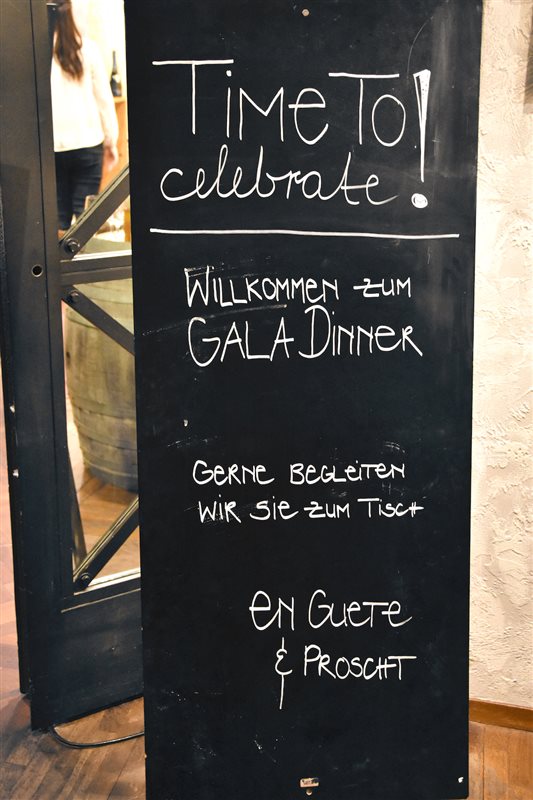 Time To
celebrate!
Willkommen zum
Gala Dinner
Gerne begleiten
wir Sie zum Tisch
en Guete
& Proscht